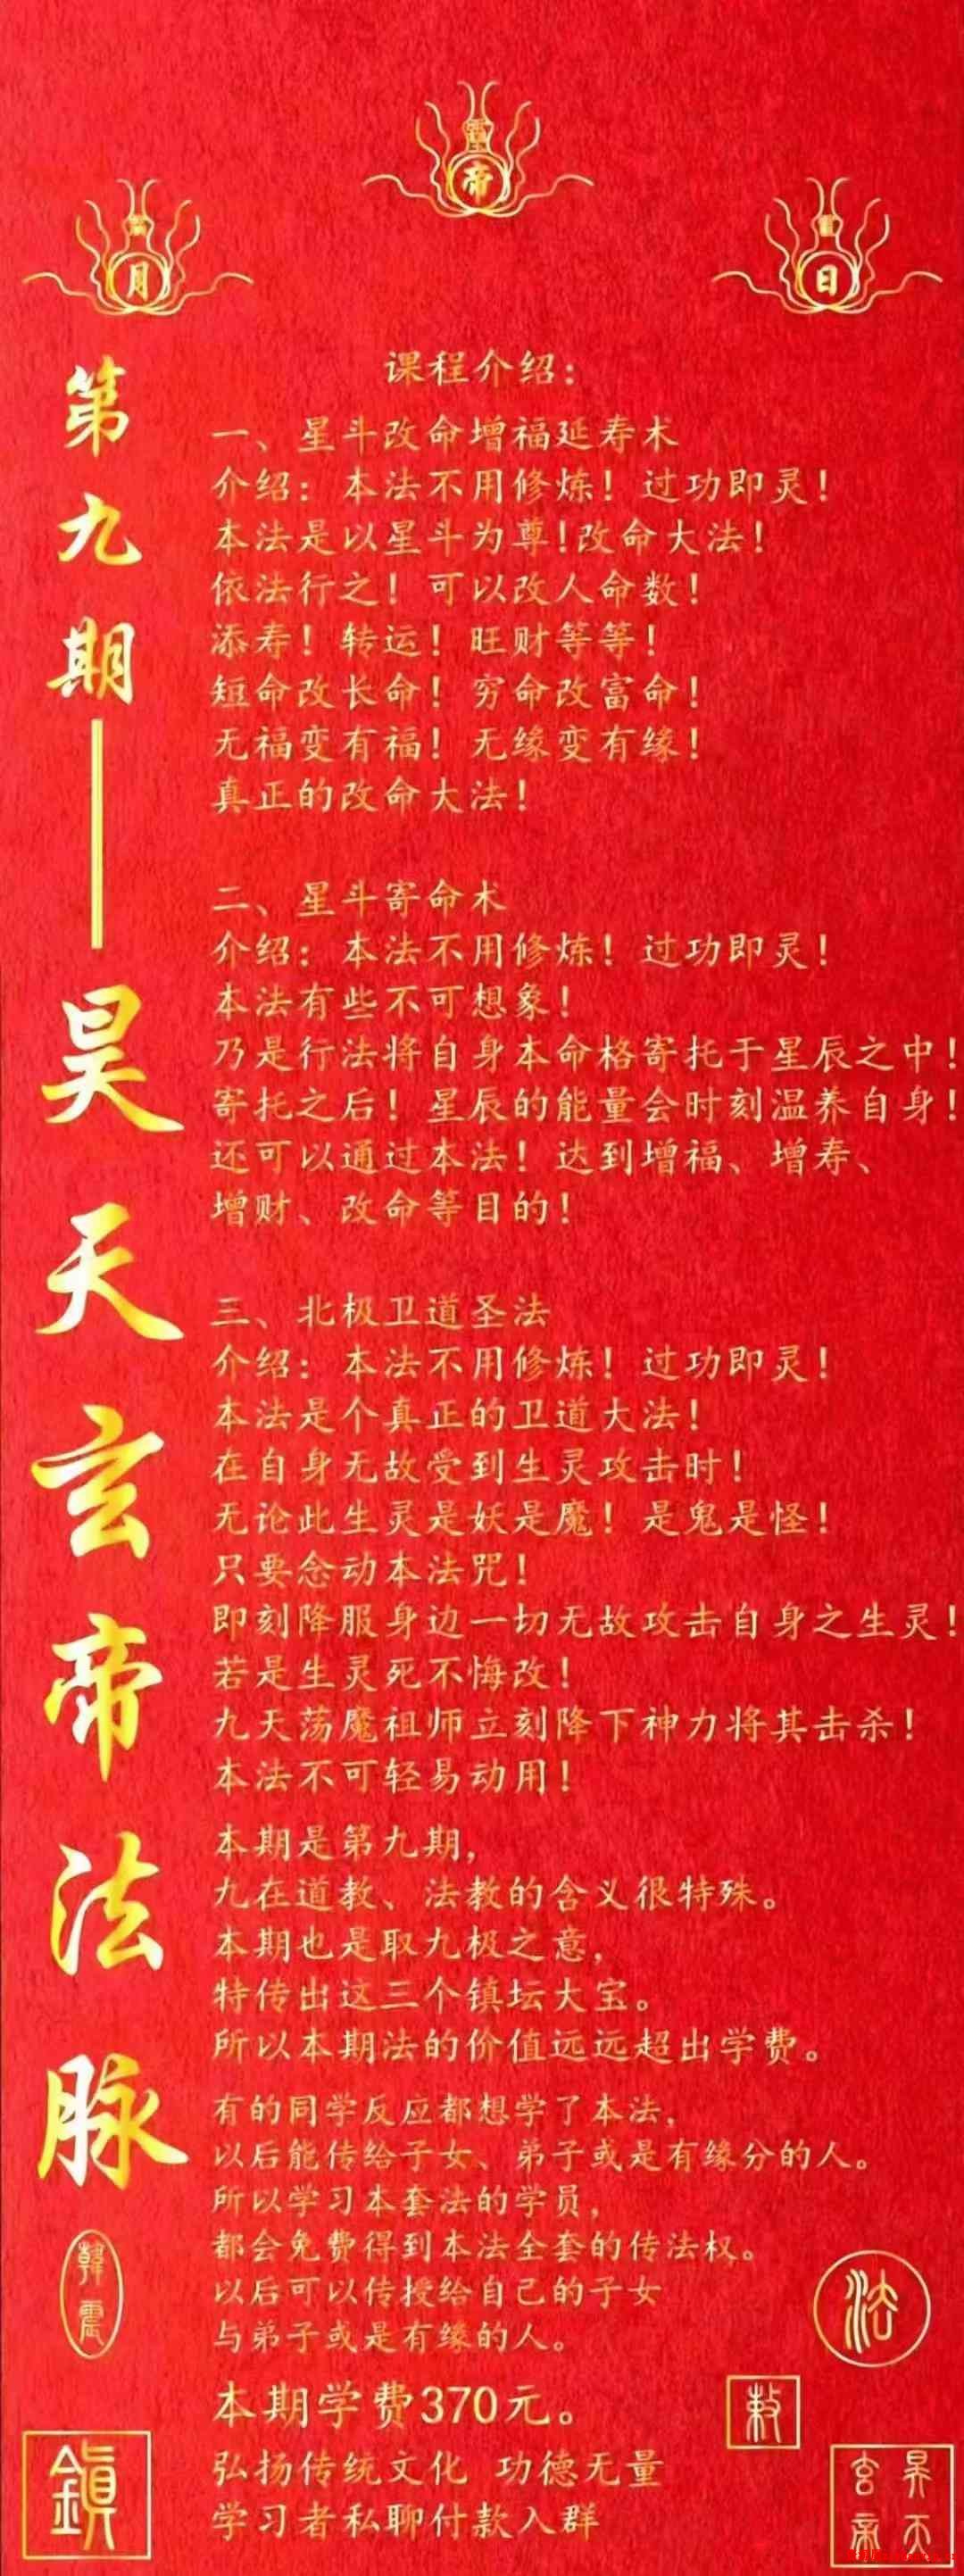 帝
月
日
第九期——昊天玄帝法脉
韓震
鎮
课程介绍：
一、星斗改命增福延寿术
介绍：本法不用修炼！过功即灵！
本法是以星斗为尊！改命大法！
依法行之！可以改人命数！
添寿！转运！旺财等等！
短命改长命！穷命改富命！
无福变有福！无缘变有缘！
真正的改命大法！
二、星斗寄命术
介绍：本法不用修炼！过功即灵！
本法有些不可想象！
乃是行法将自身本命格寄托于星辰之中！
寄托之后！星辰的能量会时刻温养自身！
还可以通过本法！达到增福、增寿、
增财、改命等目的！
三、北极卫道圣法
介绍：本法不用修炼！过功即灵！
本法是个真正的卫道大法！
在自身无故受到生灵攻击时！
无论此生灵是妖是魔！是鬼是怪！
只要念动本法咒！
即刻降服身边一切无故攻击自身之生灵！
若是生灵死不悔改！
九天荡魔祖师立刻降下神力将其击杀！
本法不可轻易动用！
本期是第九期，
九在道教、法教的含义很特殊。
本期也是取九极之意，
特传出这三个镇坛大宝。
所以本期法的价值远远超出学费。
有的同学反应都想学了本法，
以后能传给子女、弟子或是有缘分的人。
所以学习本套法的学员，
都会免费得到本法全套的传法权。
以后可以传授给自己的子女
与弟子或是有缘的人。
本期学费370元。
弘扬传统文化 功德无量
学习者私聊付款入群
法
敕
昊天玄帝